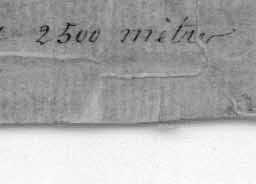 2500 mètres